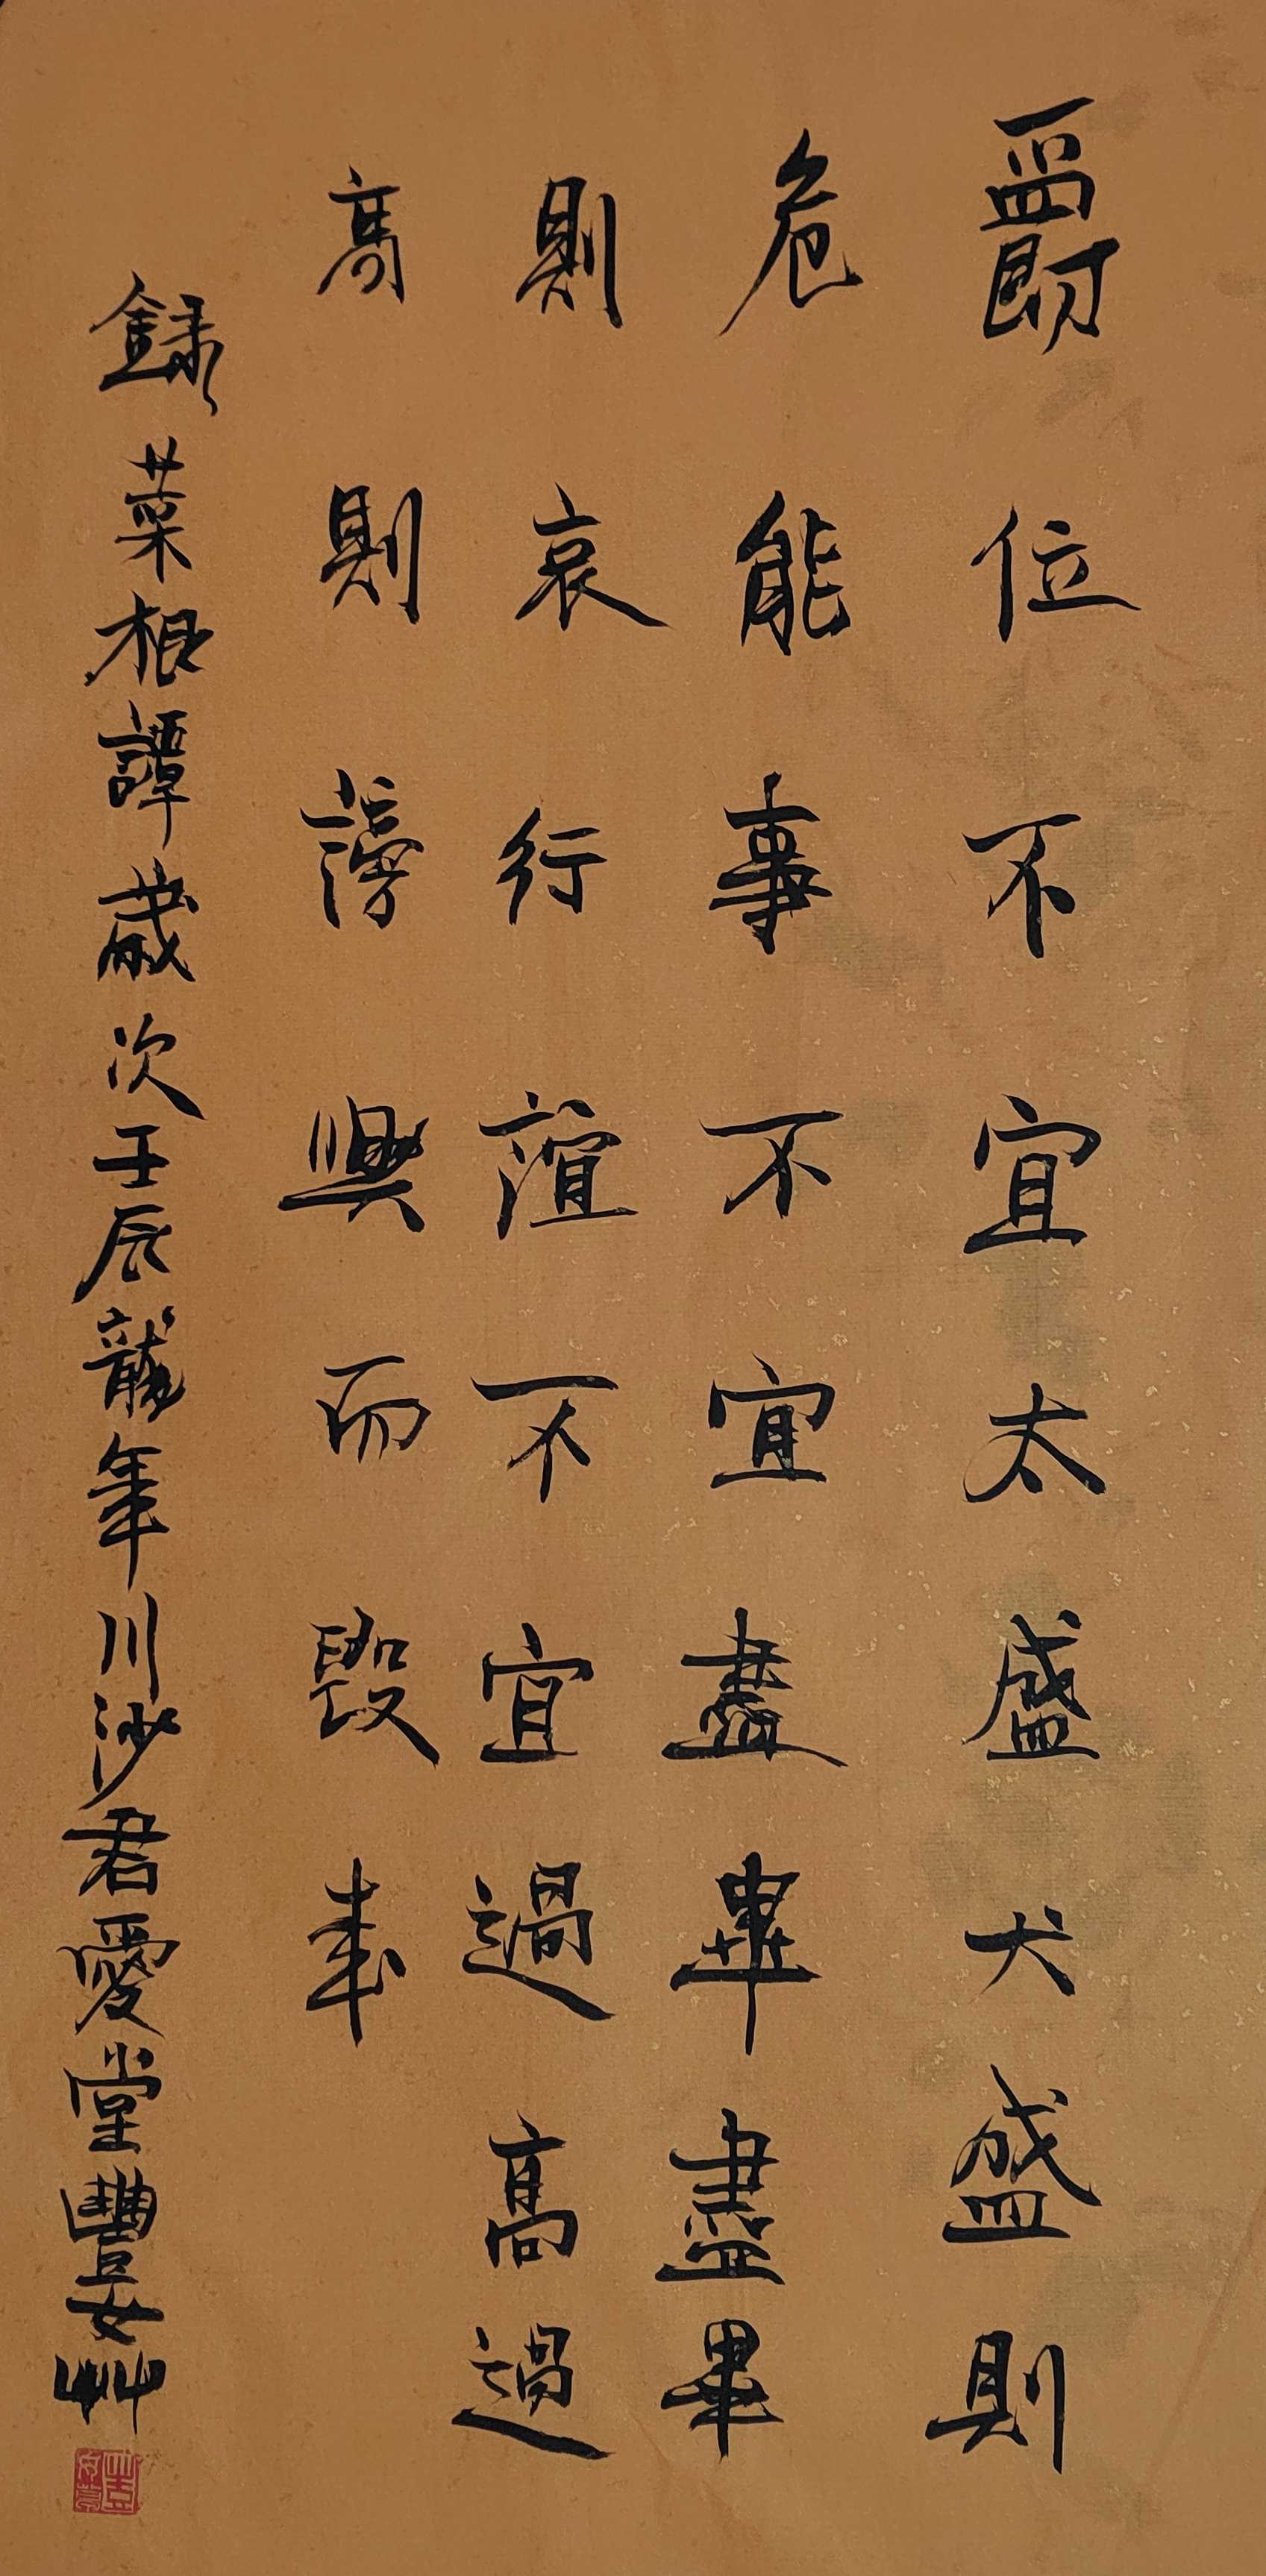 爵位不宜太盛犬盛則
危能事不宜盡畢盡畢
則哀行誼不宜過高過
高則謗興而毀來
錄菜根譚歲次壬辰龍年川沙君愛堂豐妟艸